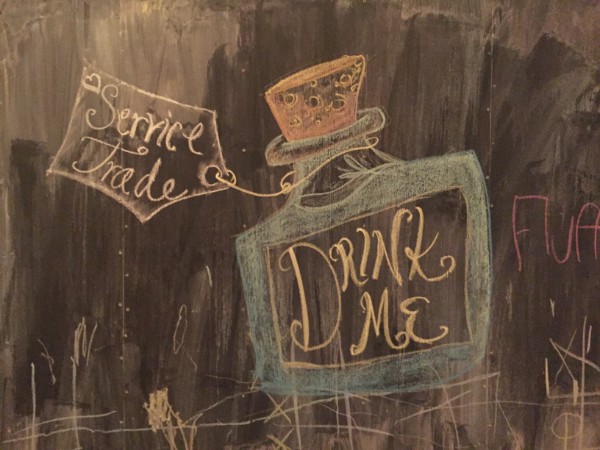 Service
Trade
DRINK
ME